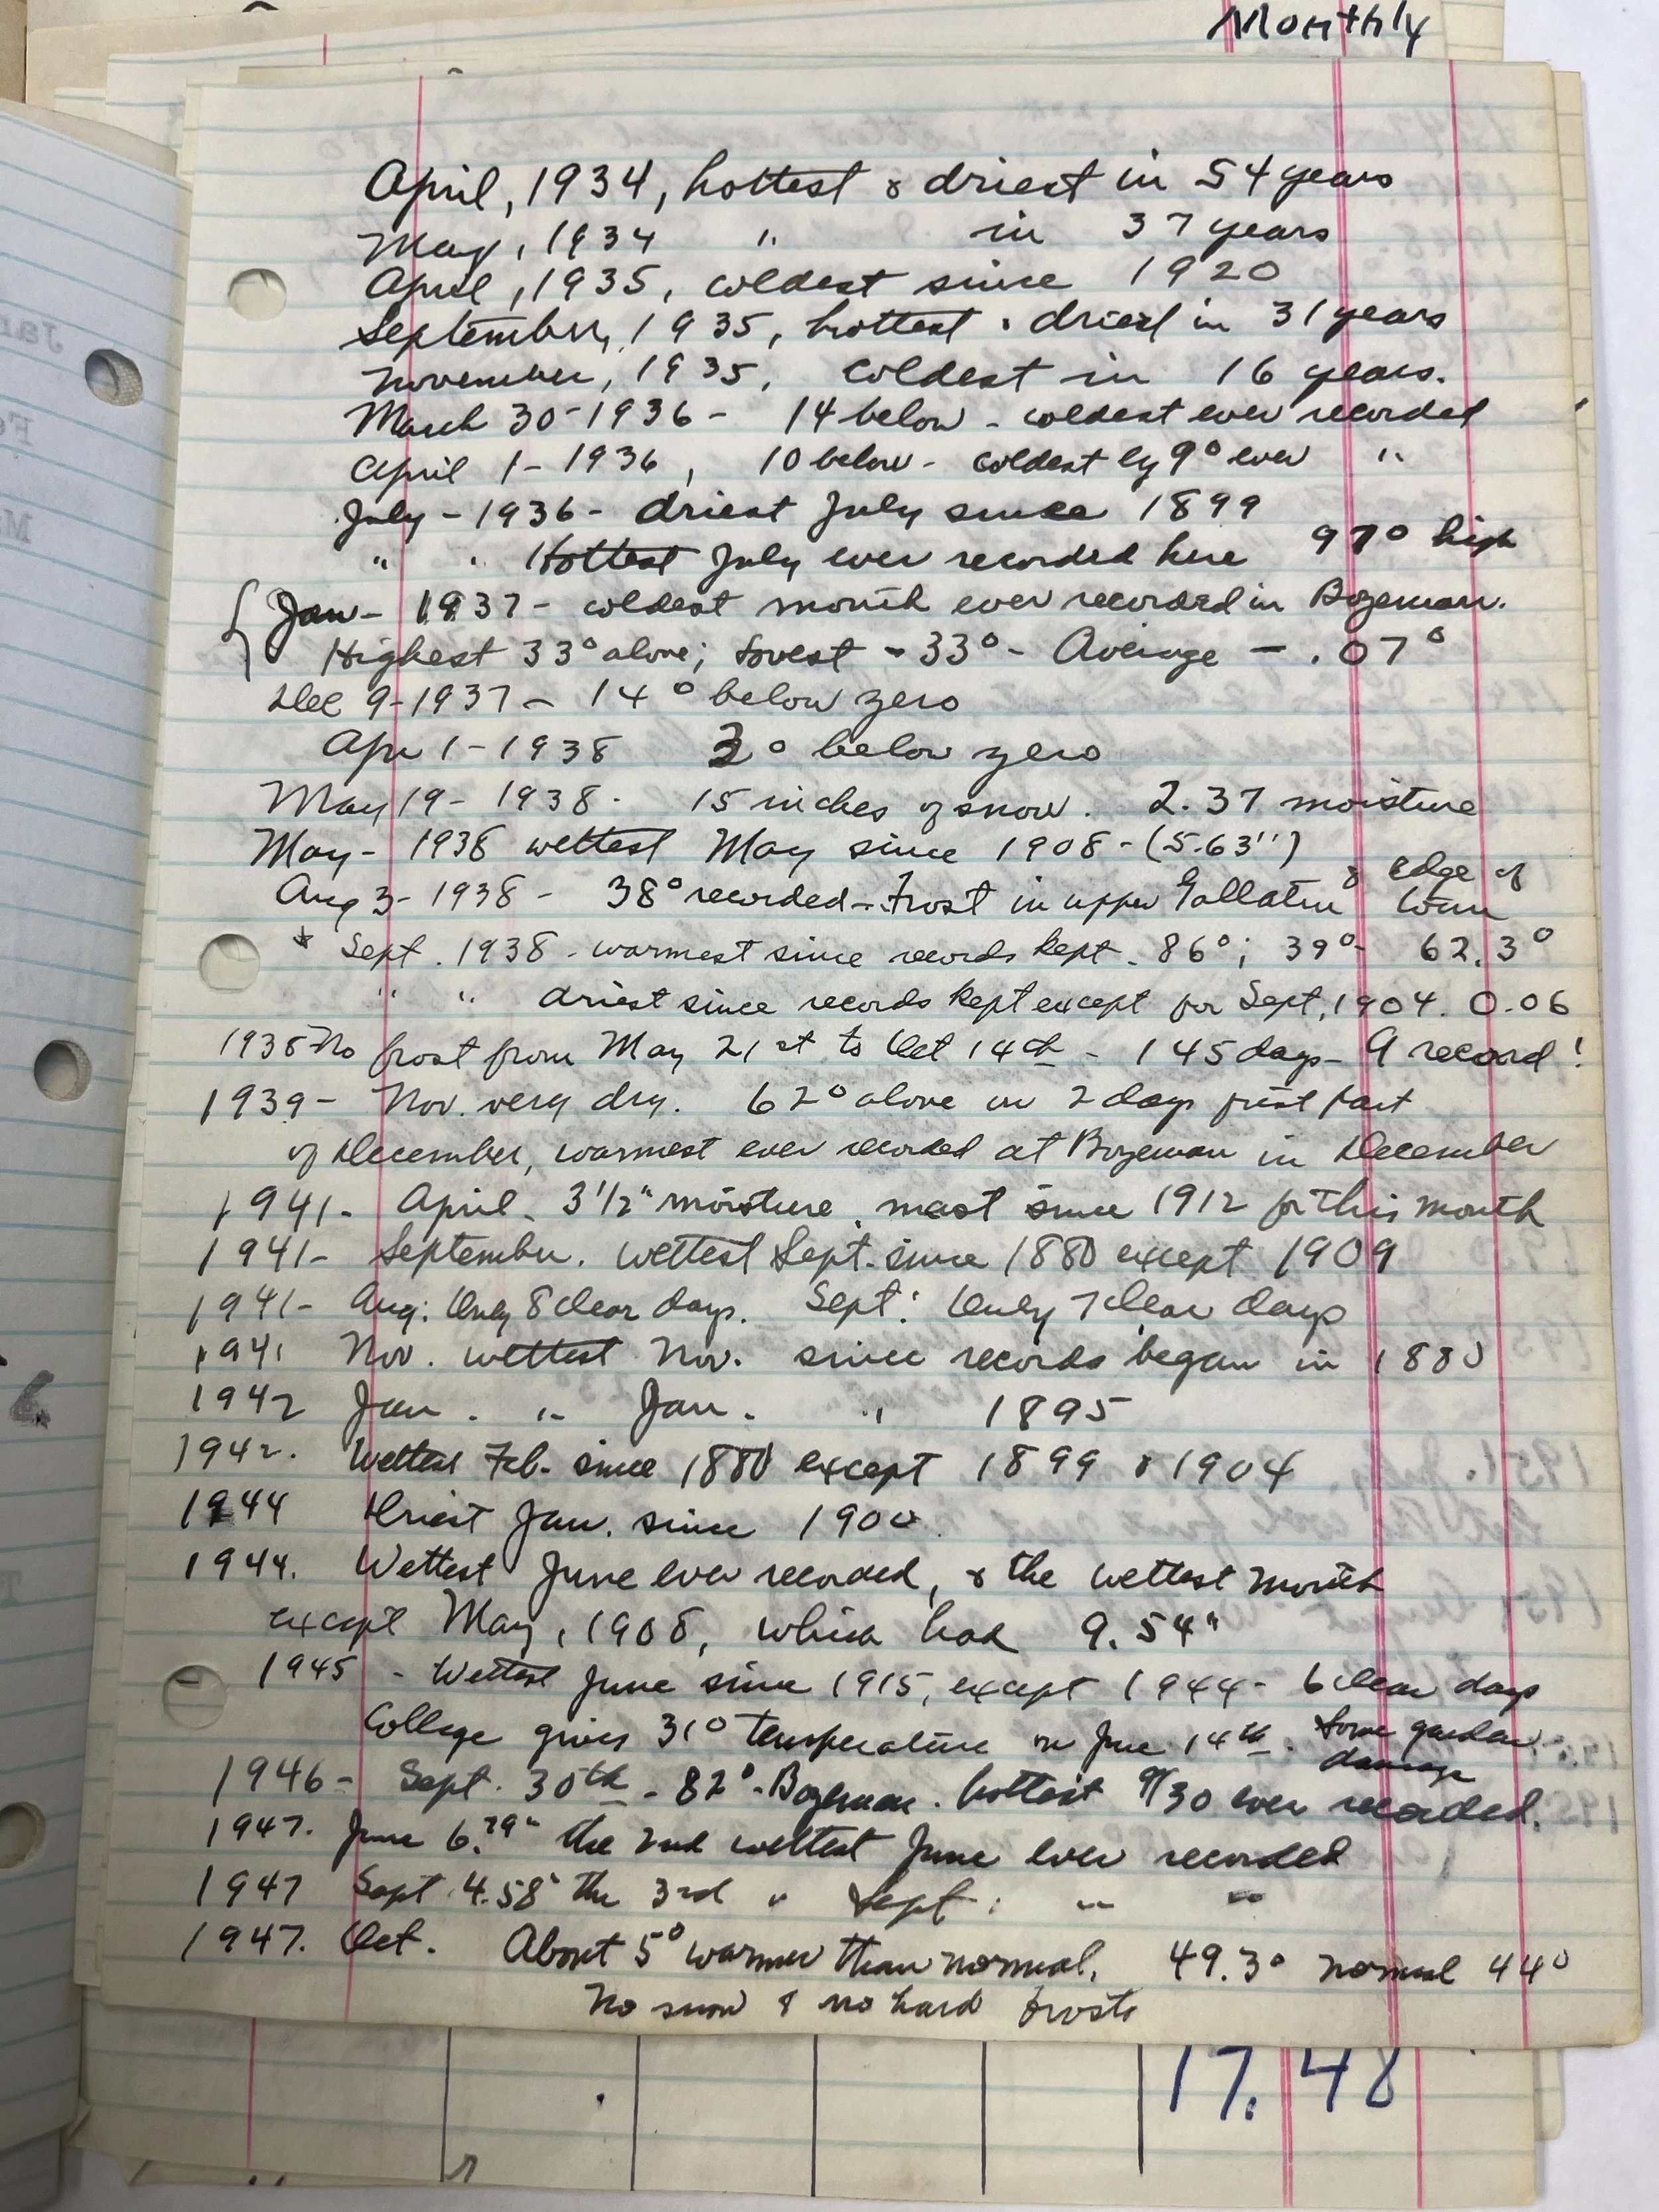 Monthly
April, 1934, hottest & driest in 54 years
May, 1934 " in 37 years
April, 1935, coldest since 1920
September, 1935, hottest & driest in 31 years
November, 1935, coldest in 16 years.
March 30-1936- 14 below - coldest ever recorded
April 1-1936, 10 below - coldest by 9° ever "
July-1936- driest July since 1899
" " Hottest July ever recorded here 97° high
Jan-1937- coldest month ever recorded in Bozeman.
Highest 33° above; lowest -33°- Average - .07°
Dec 9-1937- 14° below zero
Apr 1-1938 3° below zero
May 19-1938. 15 inches of snow. 2.37 moisture
May-1938 wettest May since 1908-(5.63")
Aug 3-1938- 38° recorded-Frost in upper Gallatin & edge of town
* Sept. 1938-warmest since records kept-86°; 39°- 62.3°
" " driest since records kept except for Sept, 1904. 0.06
1938-No frost from May 21st to Oct 14th - 145 days- A record!
1939- Nov. very dry. 62° above on 2 days first part
of December, warmest ever recorded at Bozeman in December
1941- April. 3 1/2" moisture, most since 1912 for this month
1941- September. wettest Sept. since 1880 except 1909
1941- Aug: Only 8 clear days. Sept: Only 7 clear days
1941 Nov. wettest Nov. since records began in 1880
1942 Jan. " Jan. " 1895
1942. Wettest Feb. since 1880 except 1899 & 1904
1944 Driest Jan. since 1900.
1944. Wettest June ever recorded, & the wettest month
except May, 1908, which had 9.54"
1945 - Wettest June since 1915, except 1944- 6 clear days
College gives 31° temperature on June 14th. Some garden damage
1946- Sept. 30th-82°-Bozeman. hottest 9/30 ever recorded.
1947. June 6.79" the 2nd wettest June ever recorded
1947 Sept. 4.58" the 3rd " Sept. " "
1947. Oct. About 5° warmer than normal. 49.3° normal 44°
No snow & no hard frosts
17.48